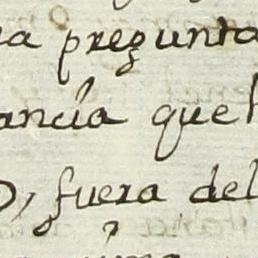 a pregunta
ancia que
, fuera del